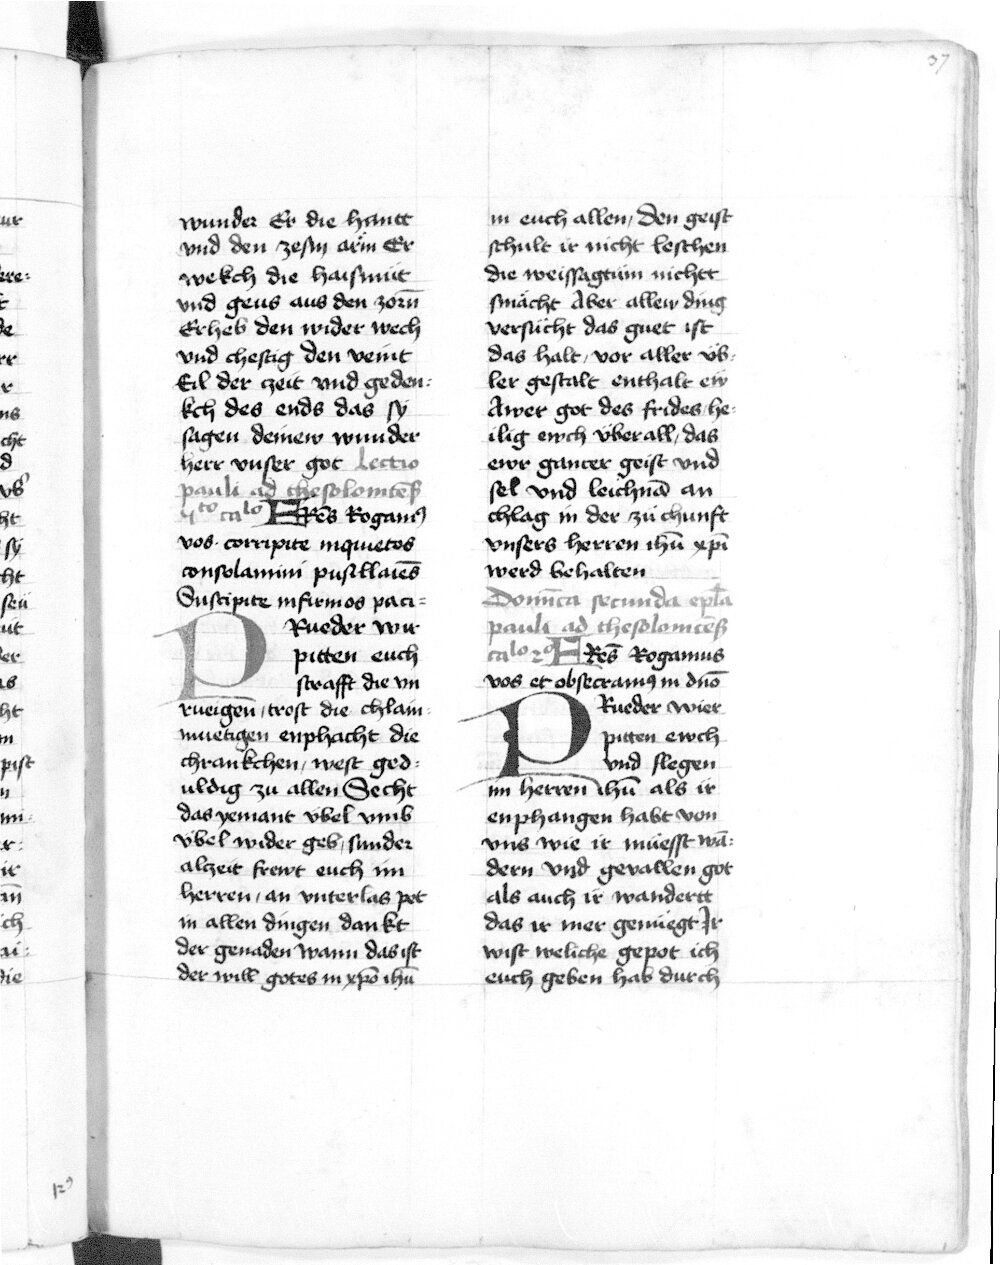 37
wunder Er die hantt
vnd den zesm arm̄ Er
wekch die haismüt
vnd geus aus den zorn̄
Erheb den wider wech
vnd chestig den veint
Eil der czeit vnd geden:
kch des ends das sy
sagen deinew wunder
herr vnser got Lectio
pauli ad thesolonicēs
to calo FRēs Rogamꝰ
vos corripite inquietos
consolamini pusillaīes
Suscipite infirmos paci:
PRueder wir
pitten euch
strafft die vn
rueigen, trost die chlain:
muetigen enphacht die
chrankchen, west ged:
uldig zu allen Secht
das yemant vbel vmb
vbel wider geb, sunder
alzeit frewt euch im
herren, an vnterlas pet
in allen dingen dankt
der genaden Wann das ist
der will gotes in xp̄o ih̄u
in euch allen, Den geist
schult ir nicht leschen
die weissagtum nichtt
smächt Aber allew ding
versücht das guet ist
das halt, vor aller vb:
ler gestalt enthalt ew
Awer got des frides, he:
ilig ewch vberall, das
ewr gantzer geist vnd
sel vnd leichnā an
chlag in der zu chunft
vnsers herren ih̄u xp̄i
werd behalten
Domīca secunda epl̄a
pauli ad thesolonicēs
calo 2o FRēs Rogamus
vos et obsecramꝰ in dn̄o
PRueder wier
pitten ewch
vnd flegen
im herren ih̄u als ir
enphangen habt von
vns wie ir müesst wā:
dern vnd gevallen got
als auch ir wandertt
das ir mer genüegt Ir
wist weliche gepot ich
euch geben hab durch